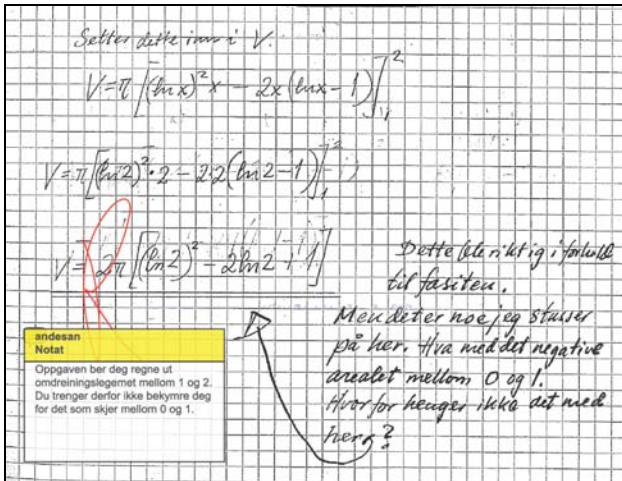 Setter dette inn i V.
V = π [(ln x)² x − 2x (ln x − 1)]₁²
V = π [(ln 2)² · 2 − 2·2 (ln 2 − 1)]₁²
V = 2π [(ln 2)² − 2 ln 2 + 1]
Dette ble riktig i forhold
til fasiten.
Men det er noe jeg stusser
på her. Hva med det negative
arealet mellom 0 og 1.
Hvorfor henger ikke det med
her?
andesan
Notat
Oppgaven ber deg regne ut
omdreiningslegemet mellom 1 og 2.
Du trenger derfor ikke bekymre deg
for det som skjer mellom 0 og 1.